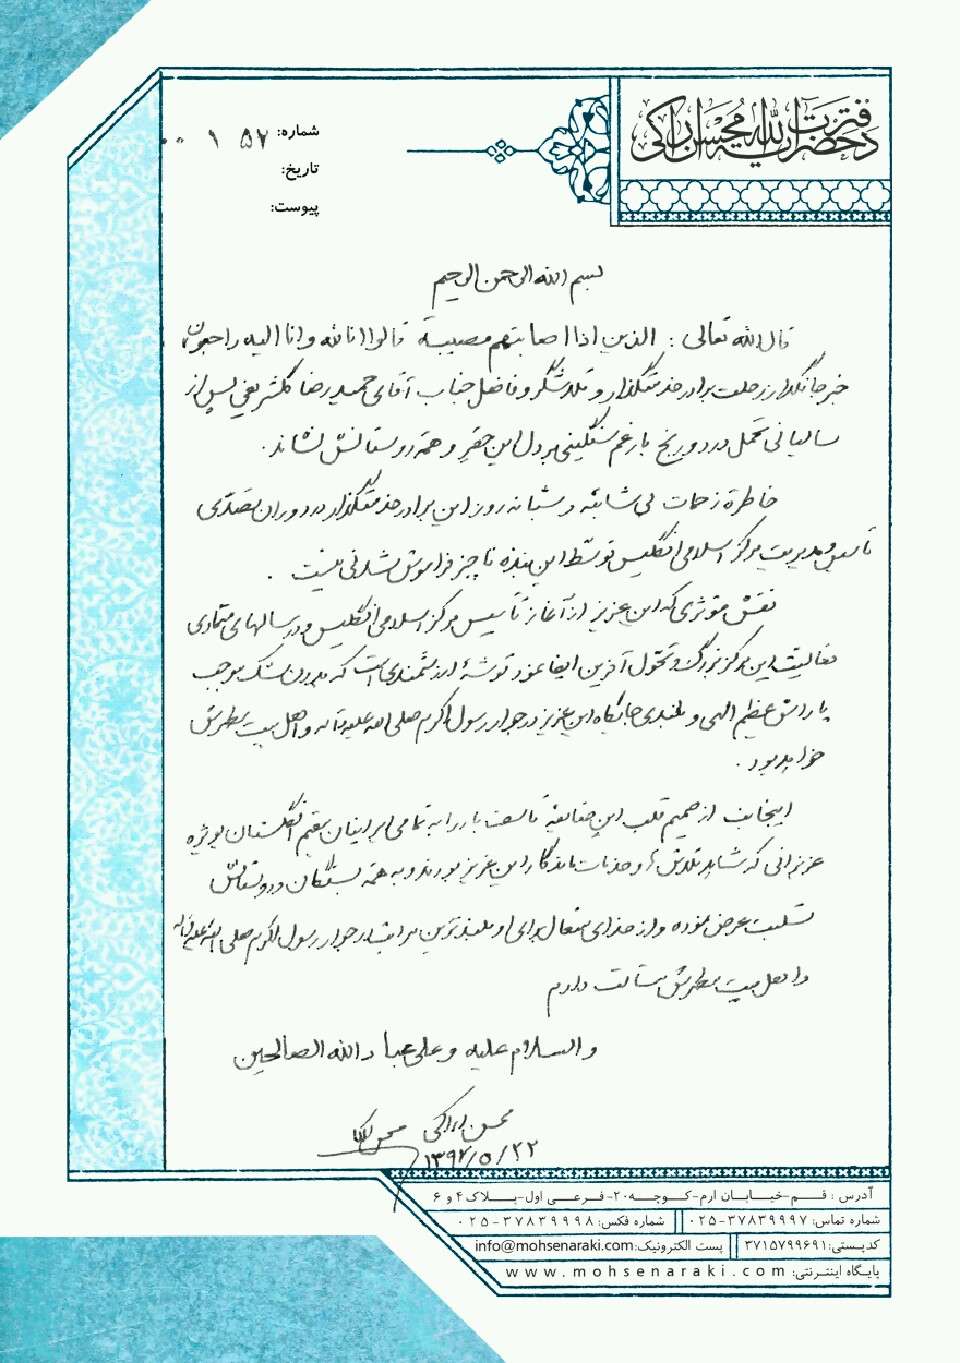 دفتر حضرت آیت الله محسن اراکی
شماره: ۵۷ ۱ ۰۰
تاریخ:
پیوست:
بسم الله الرحمن الرحیم
قال الله تعالی: الذین اذا اصابتهم مصیبة قالوا انا لله وانا الیه راجعون
خبر جانگداز رحلت برادر خدمتگذار و تلاشگر و فاضل جناب آقای حمیدرضا گلشریفی پس از
سالیانی تحمل درد و رنج بار غم سنگینی بر دل این حقیر و همه دوستانش نشاند.
خاطرهٔ زحمات بی شائبه و شبانه روز این برادر خدمتگذار در دوران تصدّی
تأسیس و مدیریت مرکز اسلامی انگلیس توسط این بندهٔ ناچیز فراموش نشدنی نیست.
نقش مؤثری که این عزیز از آغاز تأسیس مرکز اسلامی انگلیس و در سالهای متمادی
فعالیت این مرکز بزرگ و تحول آفرین ایفا نمود توشهٔ ارزشمندی است که بدون شک موجب
پاداش عظیم الهی و بلندی جایگاه این عزیز در جوار رسول اکرم صلی الله علیه وآله و اهل بیت مطهرش
خواهد بود.
اینجانب از صمیم قلب این ضایعهٔ تأسف بار را به تمامی ایرانیان مقیم انگلستان بویژه
عزیزانی که شاهد تلاش ها و خدمات ماندگار این عزیز بودند و به همه بستگان و دوستانش
تسلیت عرض نموده و از خدای متعال برای او بلندترین مراتب در جوار رسول اکرم صلی الله علیه وآله
و اهل بیت مطهرش مسألت دارم
والسلام علیه وعلی عباد الله الصالحین
محسن اراکی
۱۳۹۴/۵/۲۲
آدرس : قـم-خیـابـان ارم-کـوچـه ۲۰- فـرعـی اول-پـلاک ۴ و ۶
شماره تماس: ۳۷۸۳۹۹۹۷-۰۲۵ شماره فکس: ۳۷۸۳۹۹۹۸-۰۲۵
کدپستی: ۳۷۱۵۷۹۹۶۹۱ پست الکترونیک: info@mohsenaraki.com
پایگاه اینترنتی: www.mohsenaraki.com